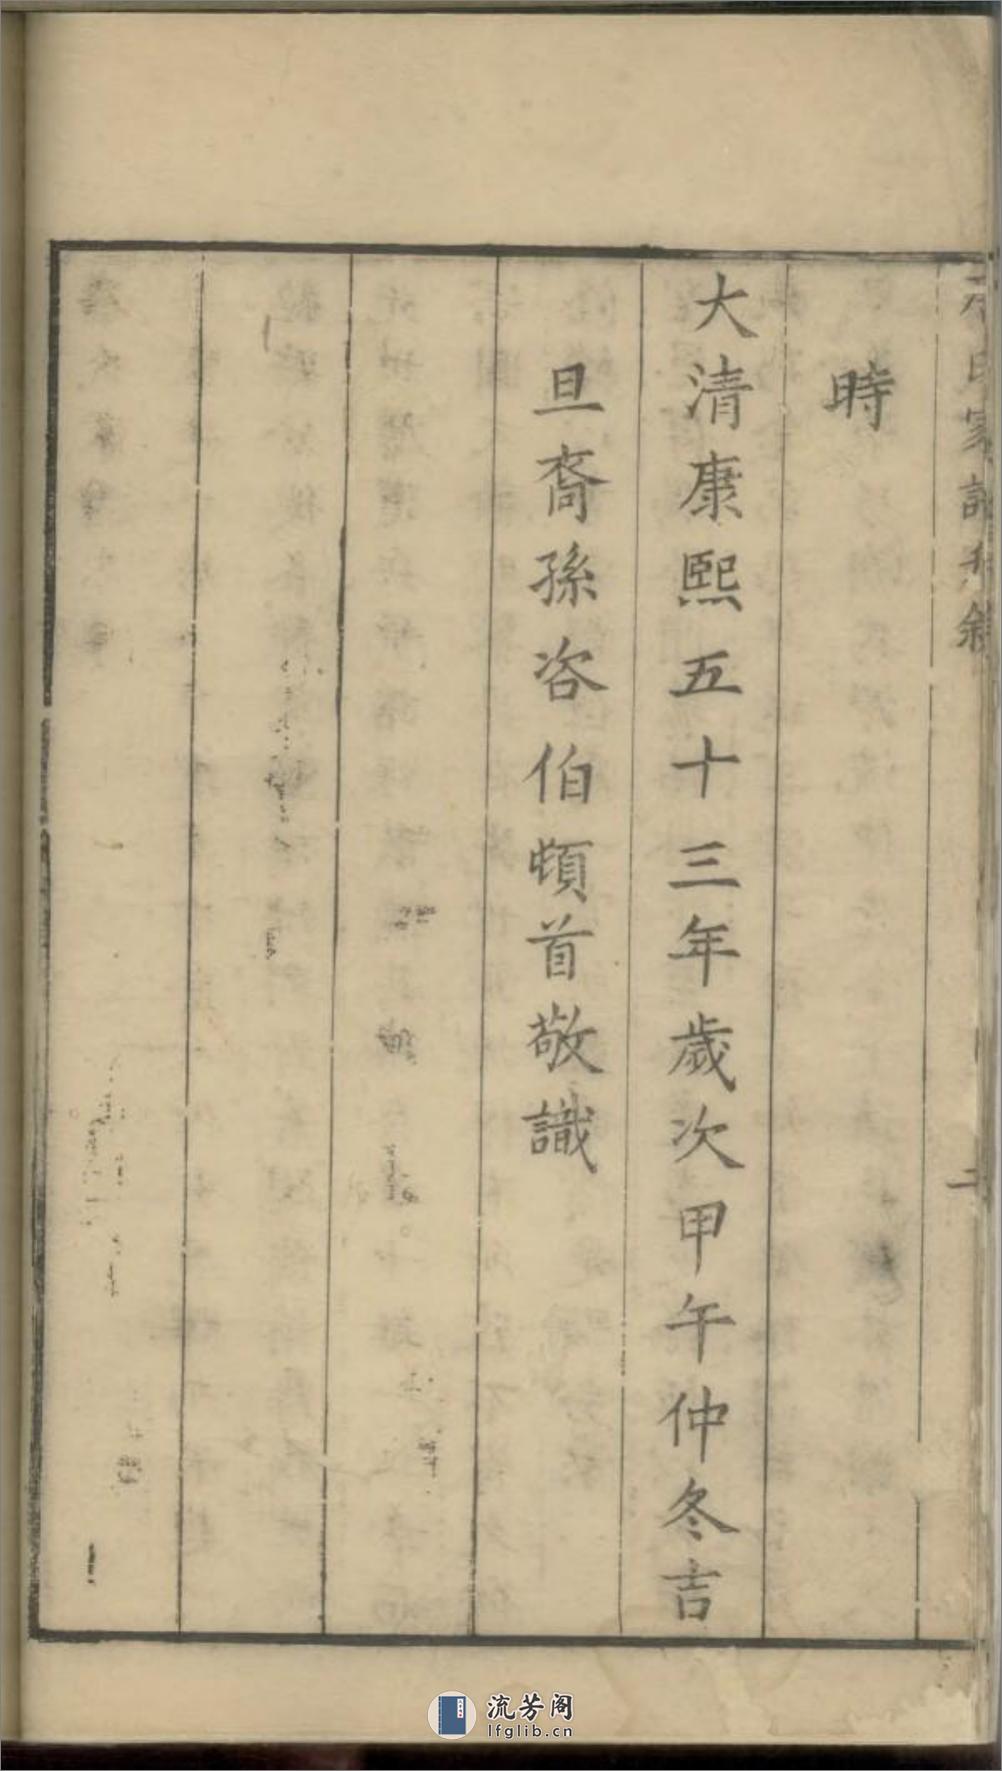 時
大清康熙五十三年歲次甲午仲冬吉
旦裔孫咨伯頓首敬識
二
流芳阁
lfglib.cn